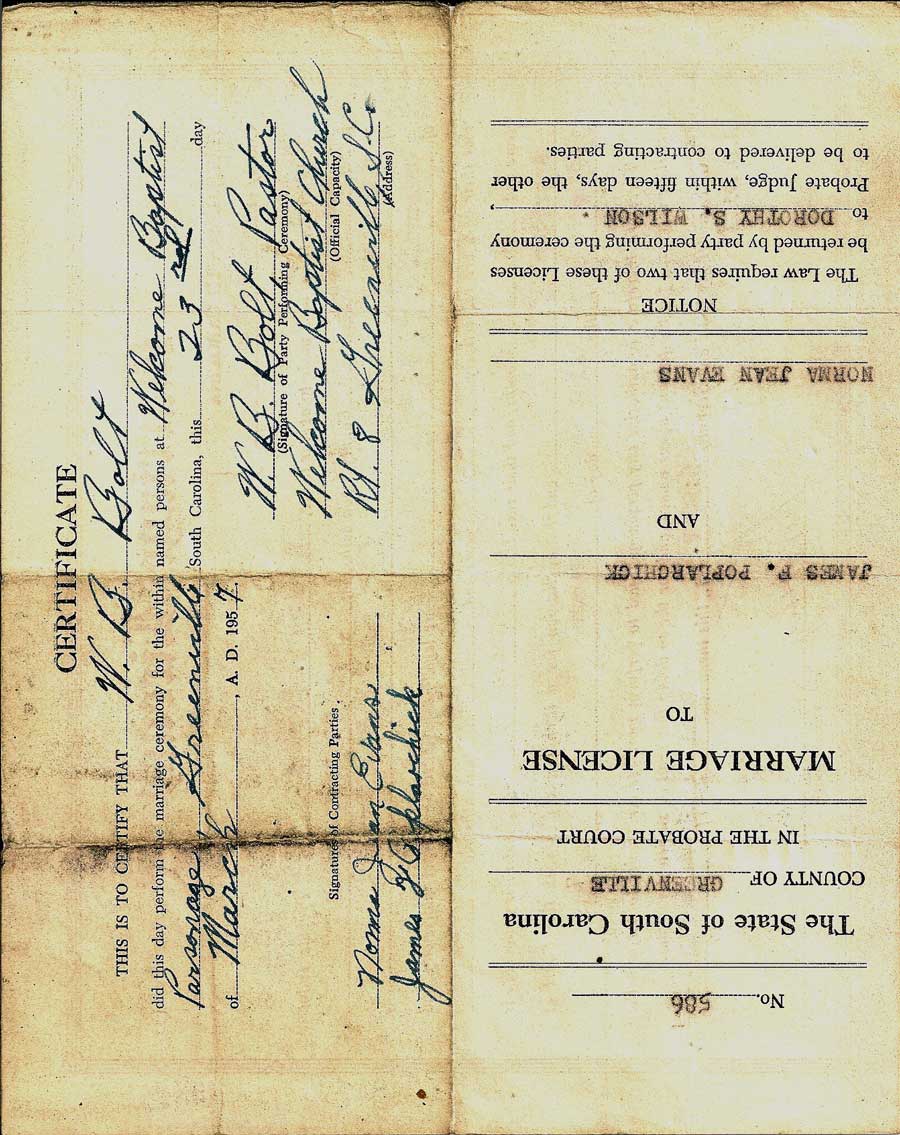 CERTIFICATE
THIS IS TO CERTIFY THAT W. B. Bolt
did this day perform the marriage ceremony for the within named persons at Welcome Baptist
Parsonage, Greenville South Carolina, this 23 rd day
of March, A. D. 1957.
W. B. Bolt Pastor
(Signature of Party Performing Ceremony)
Welcome Baptist Church
(Official Capacity)
Rt. 8 Greenville S.C.
(Address)
Signatures of Contracting Parties
Norma Jean Evans
James F Poplarchick
No. 586
The State of South Carolina
COUNTY OF GREENVILLE
IN THE PROBATE COURT
MARRIAGE LICENSE
TO
JAMES F. POPLARCHICK
AND
NORMA JEAN EVANS
NOTICE
The Law requires that two of these Licenses
be returned by party performing the ceremony
to DOROTHY S. WILSON,
Probate Judge, within fifteen days, the other
to be delivered to contracting parties.